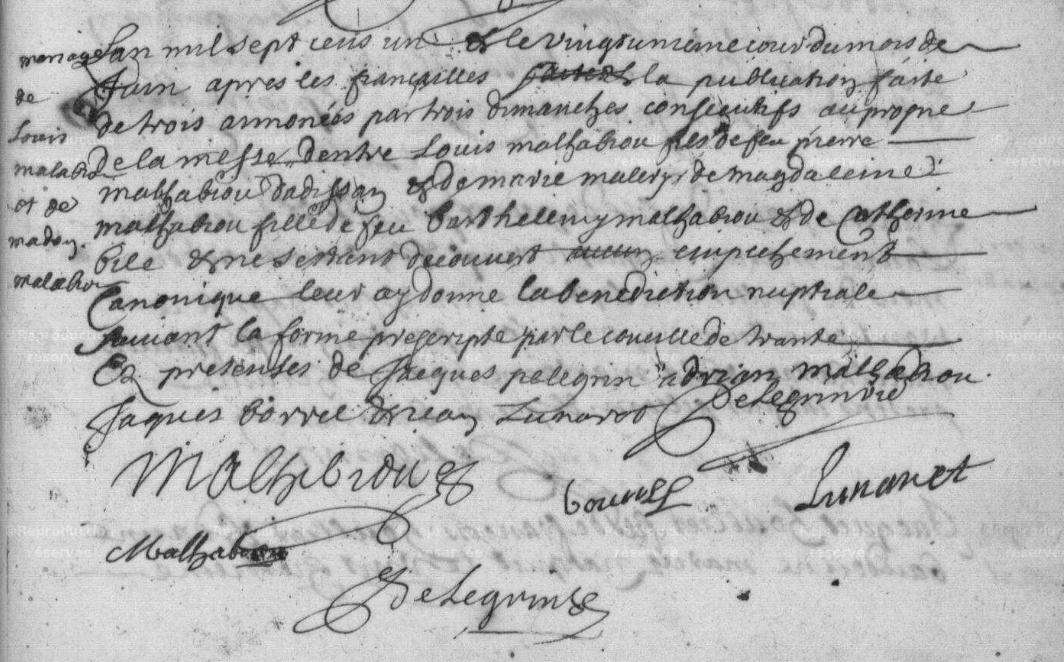 mariage
de
Louis
malabiou
et de
madon
malabiou
Lan mil sept cens un et le vingtunieme jour du mois de
Juin apres les fiancailles faites la publication faite
de trois annonces par trois dimanches consecutifs au prosne
de la messe dentre Louis malhabiou fils de feu pierre
malhabiou dadissan et de marie et de magdaleine
malhabiou fille de feu barthelemy malhabiou et de Catherine
bile et ne sestant decouvert aucun empechement
Canonique leur ay donne la benediction nuptiale
suivant la forme prescripte par le concille de trante
Ez presentes de Jacques pelegrin adrian malhabiou
Jaques borrel et jean Lunaret Pelegrin
Malhebiou
borrel
Lunaret
Malhabiou
Pelegrin